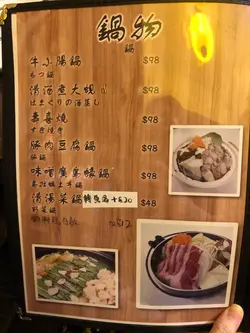 鍋物
鍋
牛小腸鍋 $98
もつ鍋
清酒煮大蜆 $98
はまぐりの酒蒸し
壽喜燒 $98
すき焼き
豚肉豆腐鍋 $98
豚鍋
味噌廣島蠔鍋 $98
清湯菜鍋 轉魚湯+$20 $48
野菜鍋